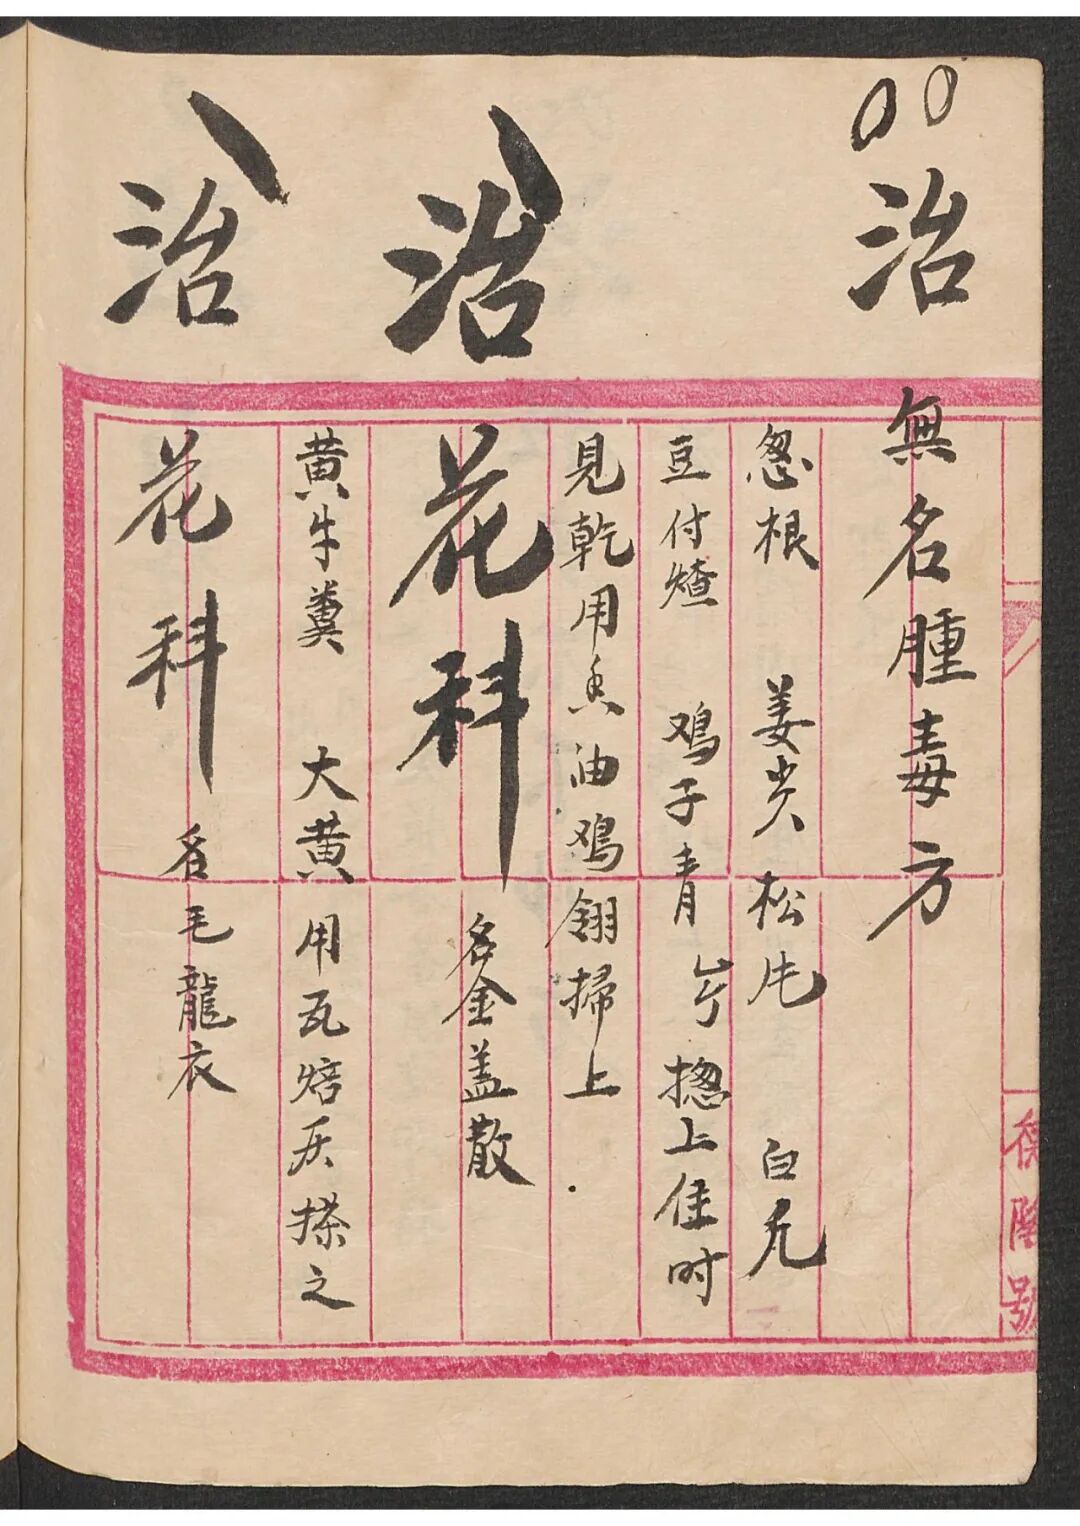 治
無名腫毒方
葱根 姜炎 松毛 白凡
豆付熷 鸡子青 岁 揔上住时
見乾用香油鸡翎掃上
治
花科 名金盖散
黄牛糞 大黄 用瓦焙灰搽之
治
花科 名毛龍衣